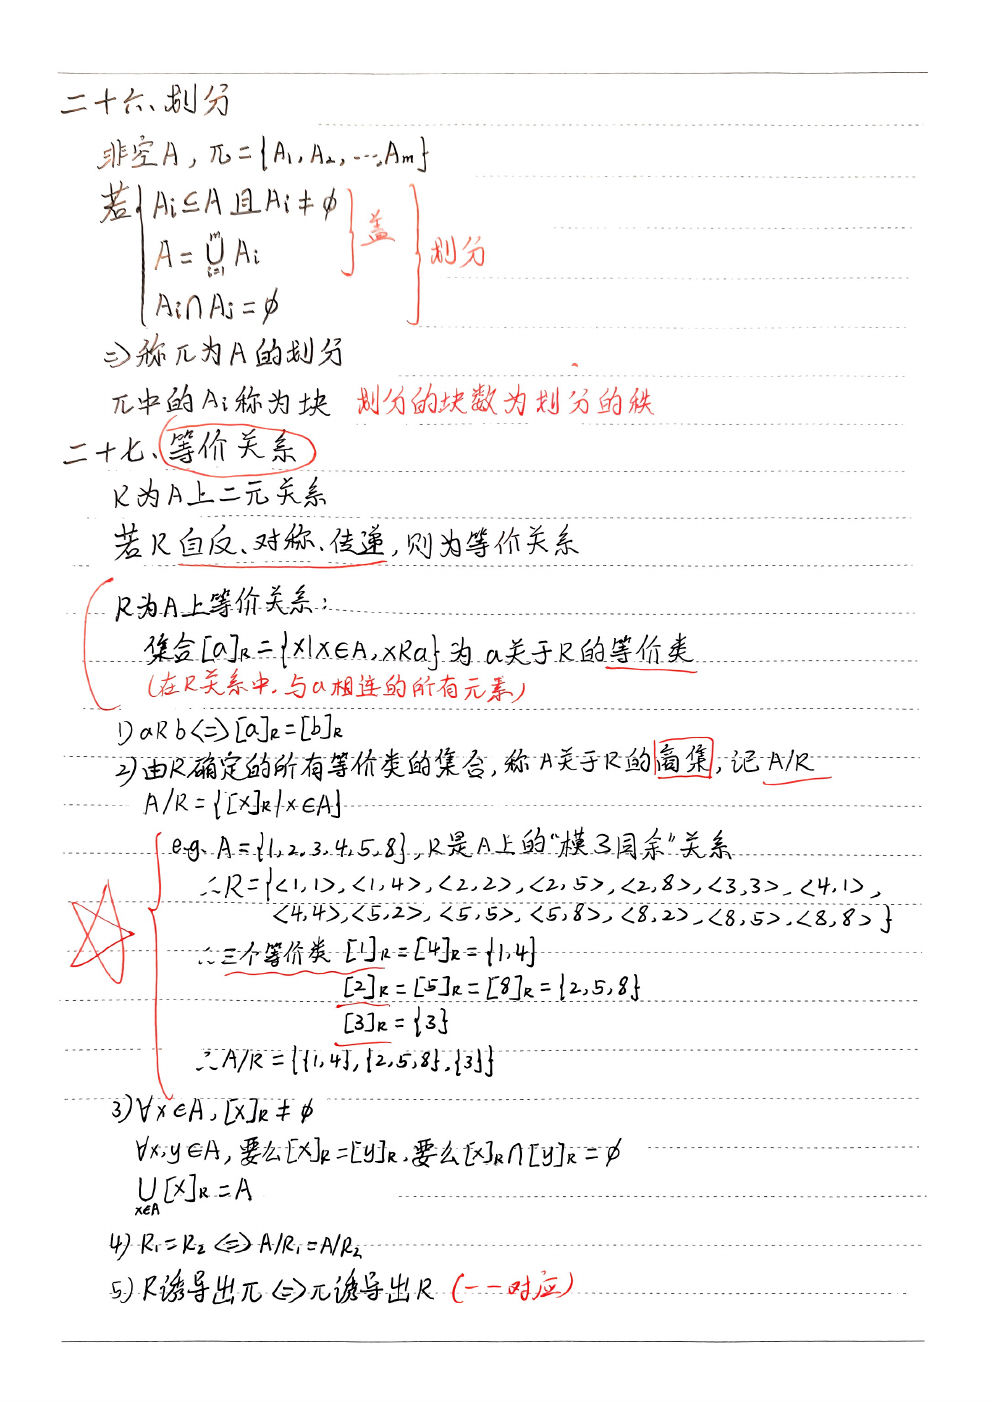 二十六、划分
非空A, π={A₁, A₂, ⋯, Aₘ}
若{ Aᵢ⊆A 且 Aᵢ≠∅
A=⋃ᵢ₌₁ᵐ Aᵢ } 盖
Aᵢ∩Aⱼ=∅ } 划分
⇒称π为A的划分
π中的Aᵢ称为块 划分的块数为划分的秩
二十七、等价关系
R为A上二元关系
若R自反、对称、传递, 则为等价关系
R为A上等价关系:
集合[a]R={x|x∈A, xRa}为a关于R的等价类
(在R关系中,与a相连的所有元素)
1) aRb⇔[a]R=[b]R
2) 由R确定的所有等价类的集合, 称A关于R的商集, 记A/R
A/R={[x]R|x∈A}
e.g. A={1,2,3,4,5,8}, R是A上的“模3同余”关系
∴R={<1,1>,<1,4>,<2,2>,<2,5>,<2,8>,<3,3>,<4,1>,
<4,4>,<5,2>,<5,5>,<5,8>,<8,2>,<8,5>,<8,8>}
∴三个等价类 [1]R=[4]R={1,4}
[2]R=[5]R=[8]R={2,5,8}
[3]R={3}
∴A/R={{1,4},{2,5,8},{3}}
3) ∀x∈A, [x]R≠∅
∀x,y∈A, 要么[x]R=[y]R, 要么[x]R∩[y]R=∅
⋃x∈A [x]R=A
4) R₁=R₂⇔A/R₁=A/R₂
5) R诱导出π⇔π诱导出R (一一对应)